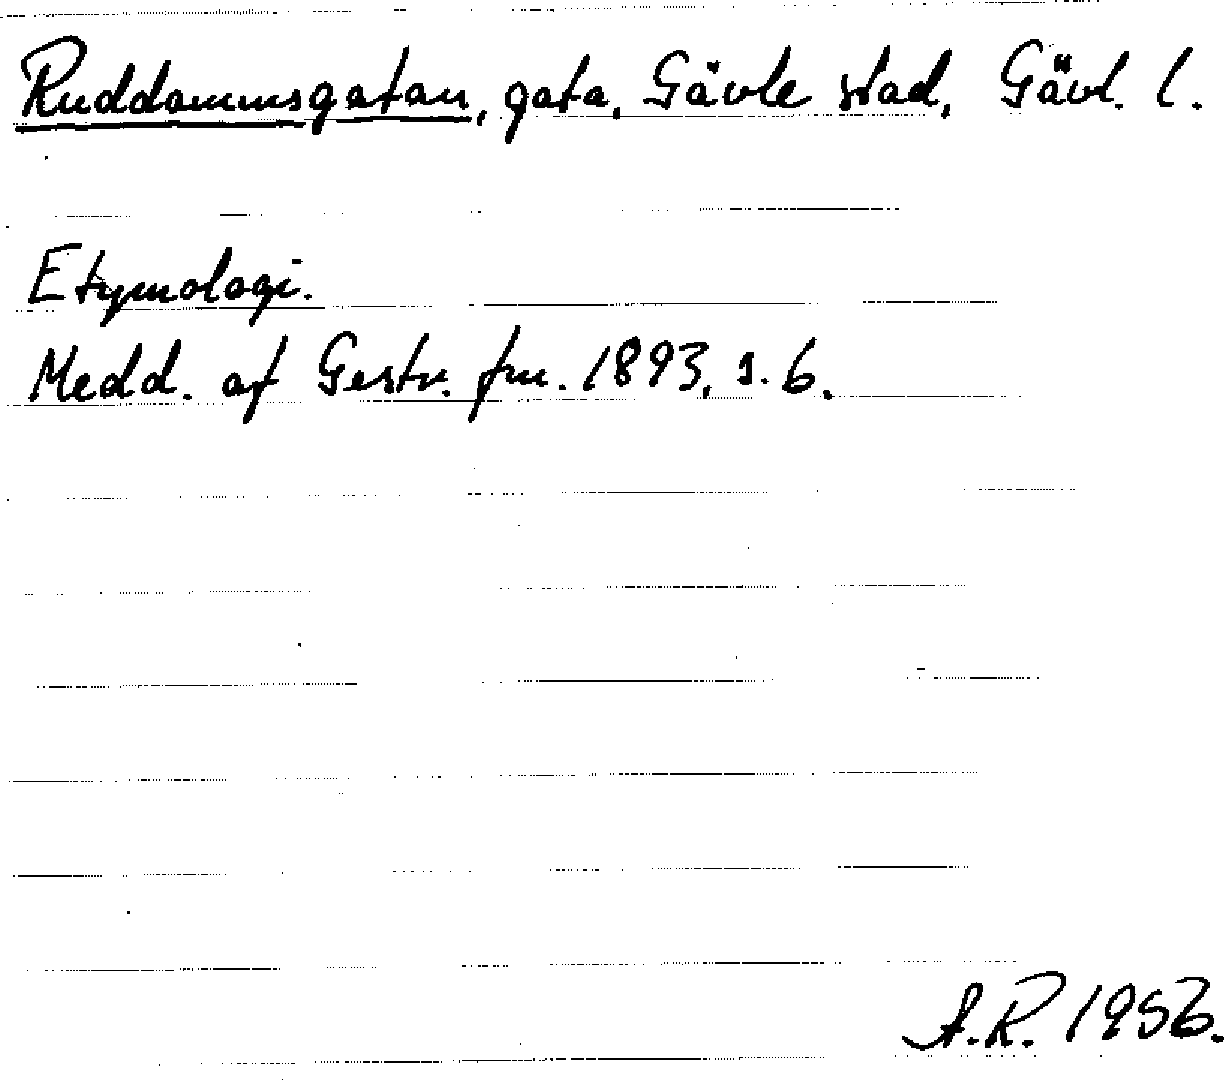 Ruddammsgatan, gata, Gävle stad, Gävl. l.
Etymologi.
Medd. af Gestr. fm. 1893, s. 6.
A.R. 1956.